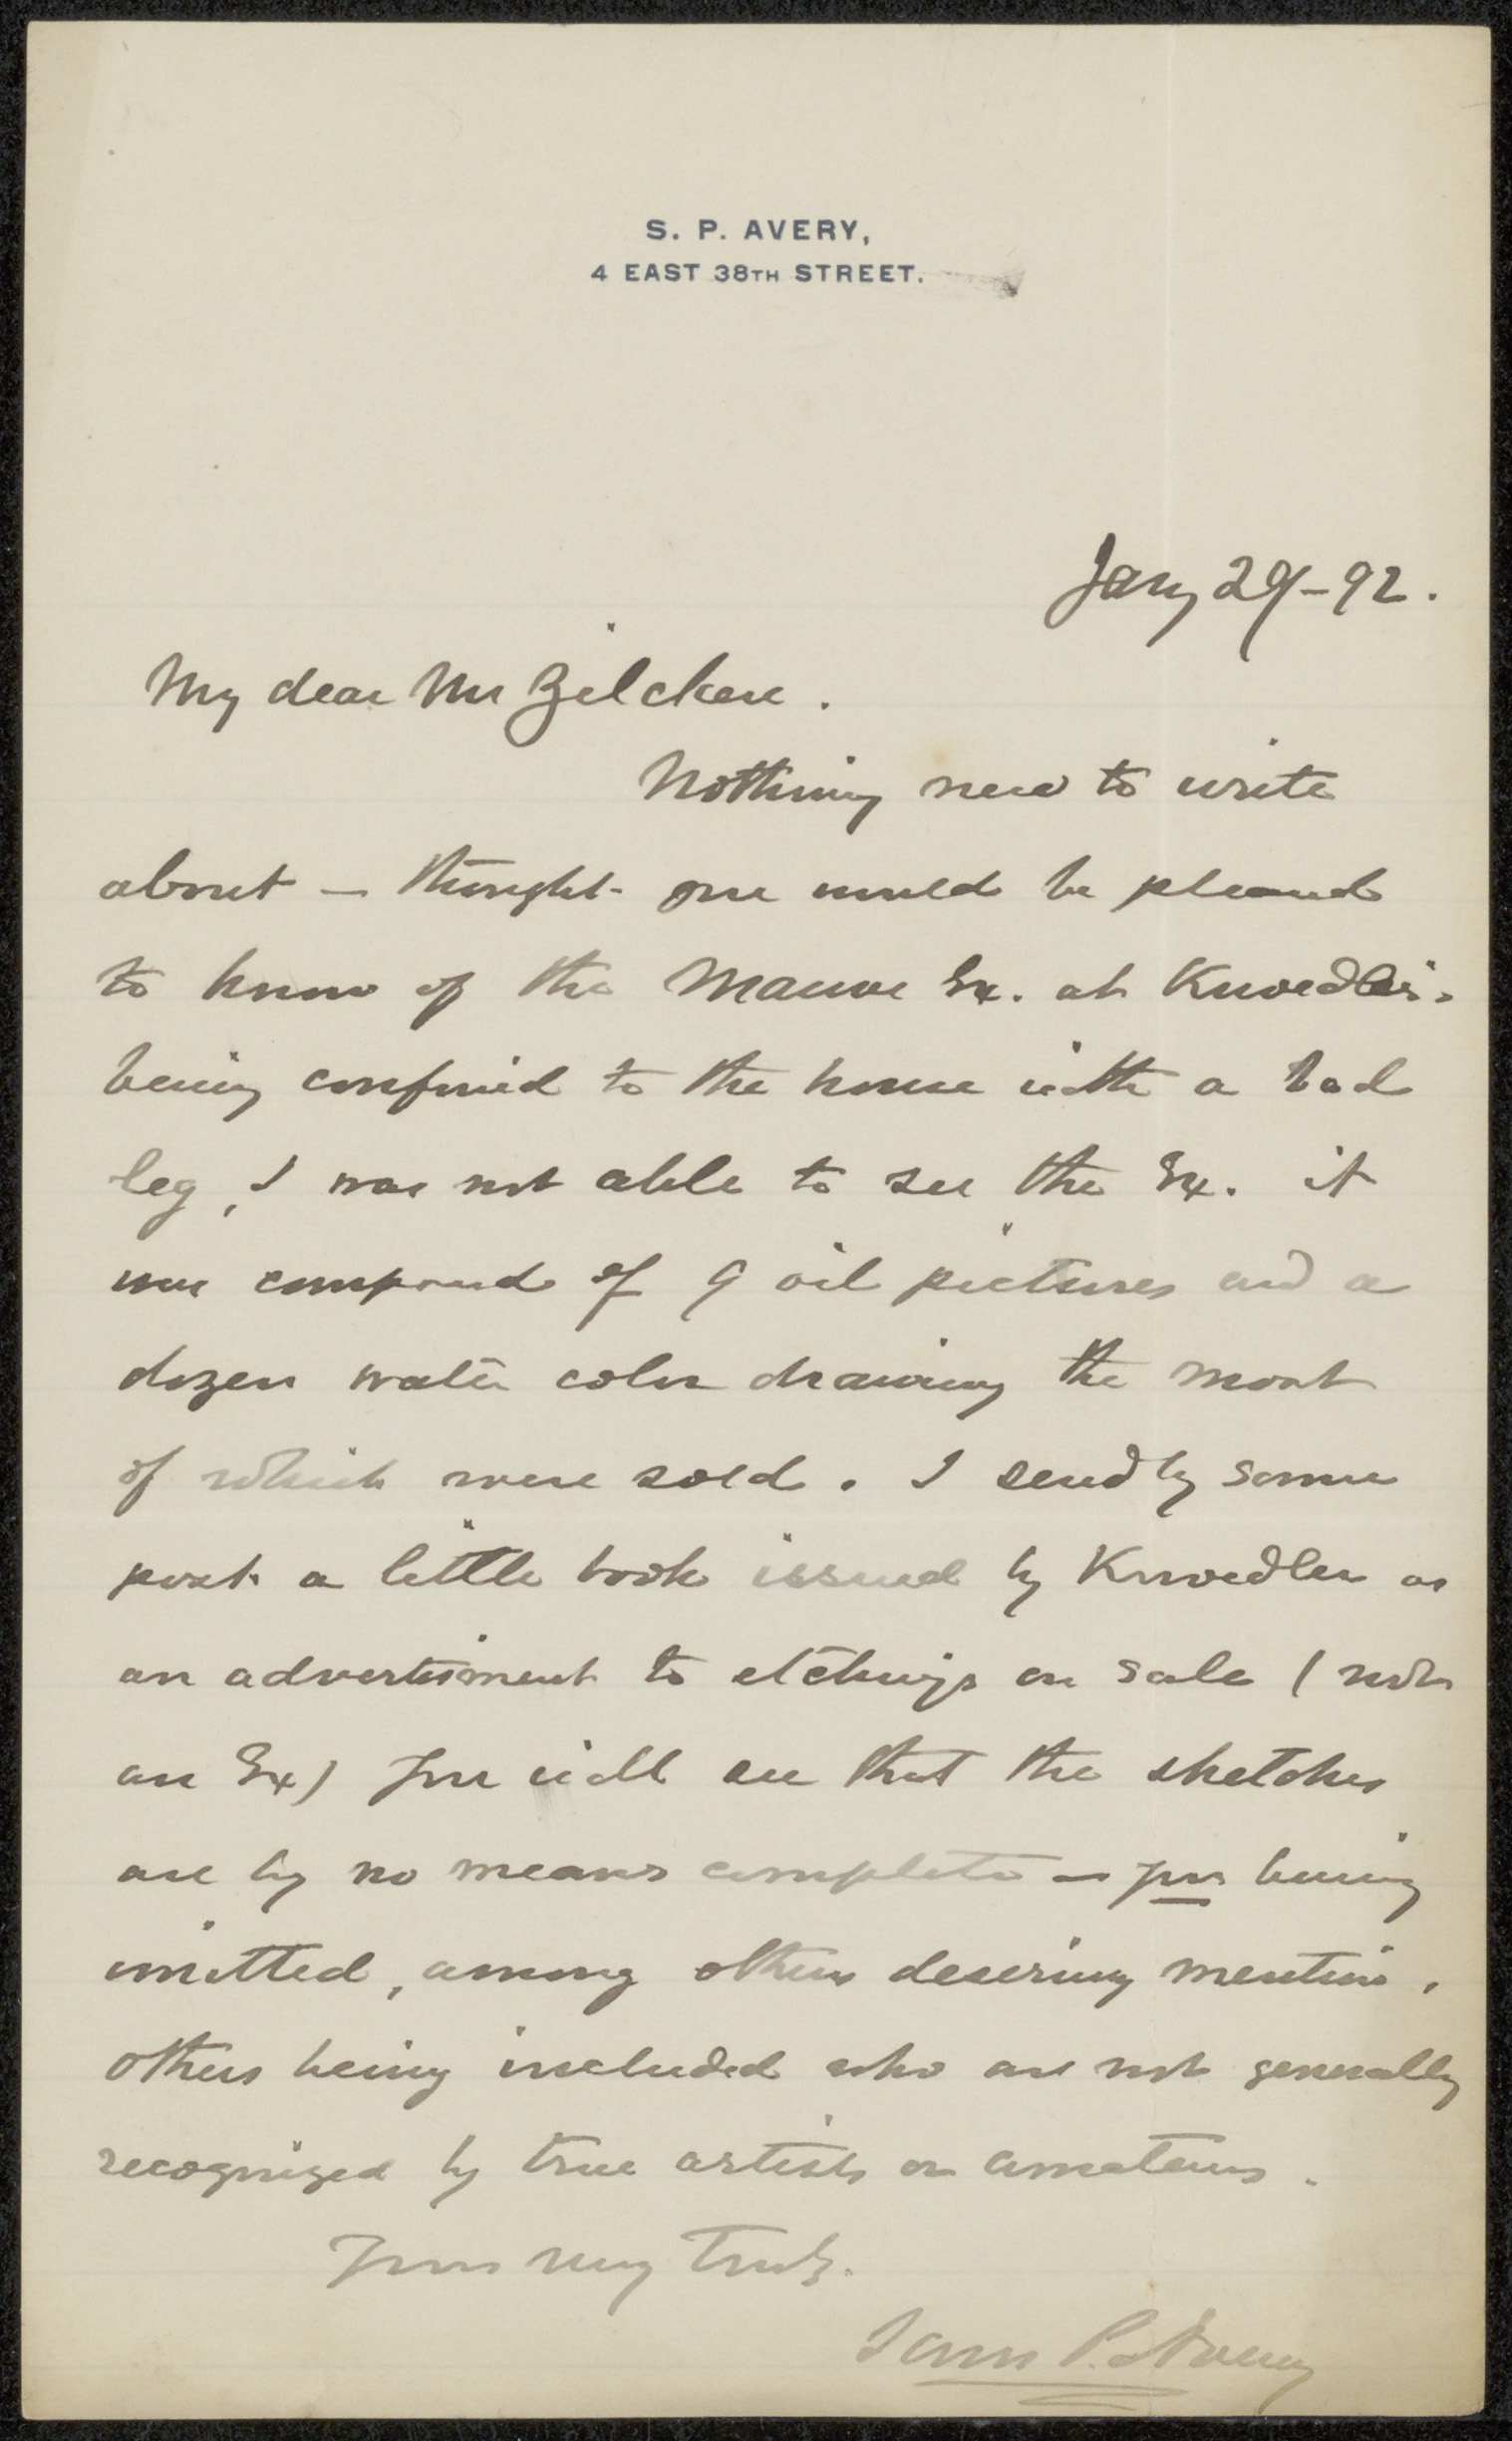 S. P. AVERY,
4 EAST 38TH STREET.
Jany 29-92.
My dear Mr Zilcken.
Nothing new to write
about — thought you would be pleased
to know of the Mauve Ex. at Knoedlers.
being confined to the house with a bad
leg, I was not able to see the Ex. it
was composed of 9 oil pictures and a
dozen water color drawing the most
of which were sold. I send by same
post a little book issued by Knoedler as
an advertisment to etchings on sale (not
an Ex) you will see that the sketches
are by no means complete — you being
omitted, among others deserving mention,
others being included who are not generally
recognized by true artists or amateurs.
Yours very truly.
Saml P. Avery